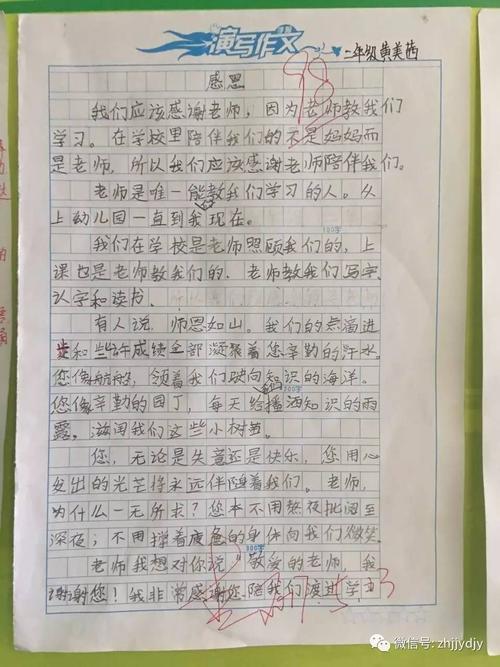 演写作文
二年级黄美茜
98
感恩
我们应该感谢老师，因为老师教我们
学习。在学校里陪伴我们的不是妈妈而
是老师，所以我们应该感谢老师陪伴我们。
老师是唯一能教我们学习的人。从
上幼儿园一直到我现在。
100字
我们在学校是老师照顾我们的，上
课也是老师教我们的．老师教我们写字、
认字和读书．
有人说，师恩如山。我们的点滴进
步和些许成绩全部凝聚着您辛勤的汗水。
您像航船，领着我们驶向知识的海洋。
200字
您像辛勤的园丁，每天给播洒知识的雨
露。滋润我们这些小树苗。
您，无论是失意还是快乐，您用心
发出的光芒将永远伴随着我们。老师，
为什么一无所求？您本不用熬夜批阅至
深夜；不用撑着疲惫的身体向我们微笑
300字
老师我想对你说，敬爱的老师，我
谢谢您！我非常感谢您陪我们度过学
微信号：zhjjydjy